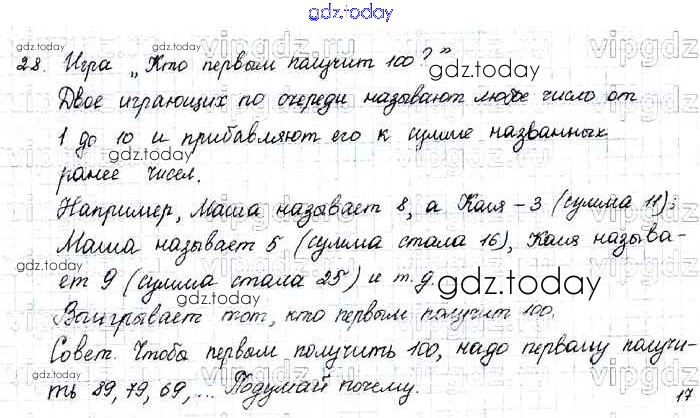 gdz.today
28. Игра „Кто первым получит 100?”
gdz.today
gdz.today
Двое играющих по очереди называют любое число от
1 до 10 и прибавляют его к сумме названных
gdz.today
ранее чисел.
Например, Маша называет 8, а Коля - 3 (сумма 11);
Маша называет 5 (сумма стала 16), Коля называ-
ет 9 (сумма стала 25) и т.д.
gdz.today
gdz.today
Выигрывает тот, кто первым получит 100.
Совет. Чтобы первым получить 100, надо первому получи-
ть 89, 79, 69, ... Подумай почему.
gdz.today
17